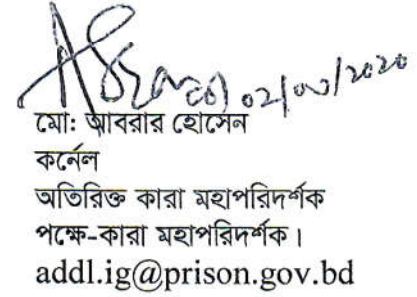 ০২/০৩/২০২০
মো: আবরার হোসেন
কর্নেল
অতিরিক্ত কারা মহাপরিদর্শক
পক্ষে-কারা মহাপরিদর্শক।
addl.ig@prison.gov.bd